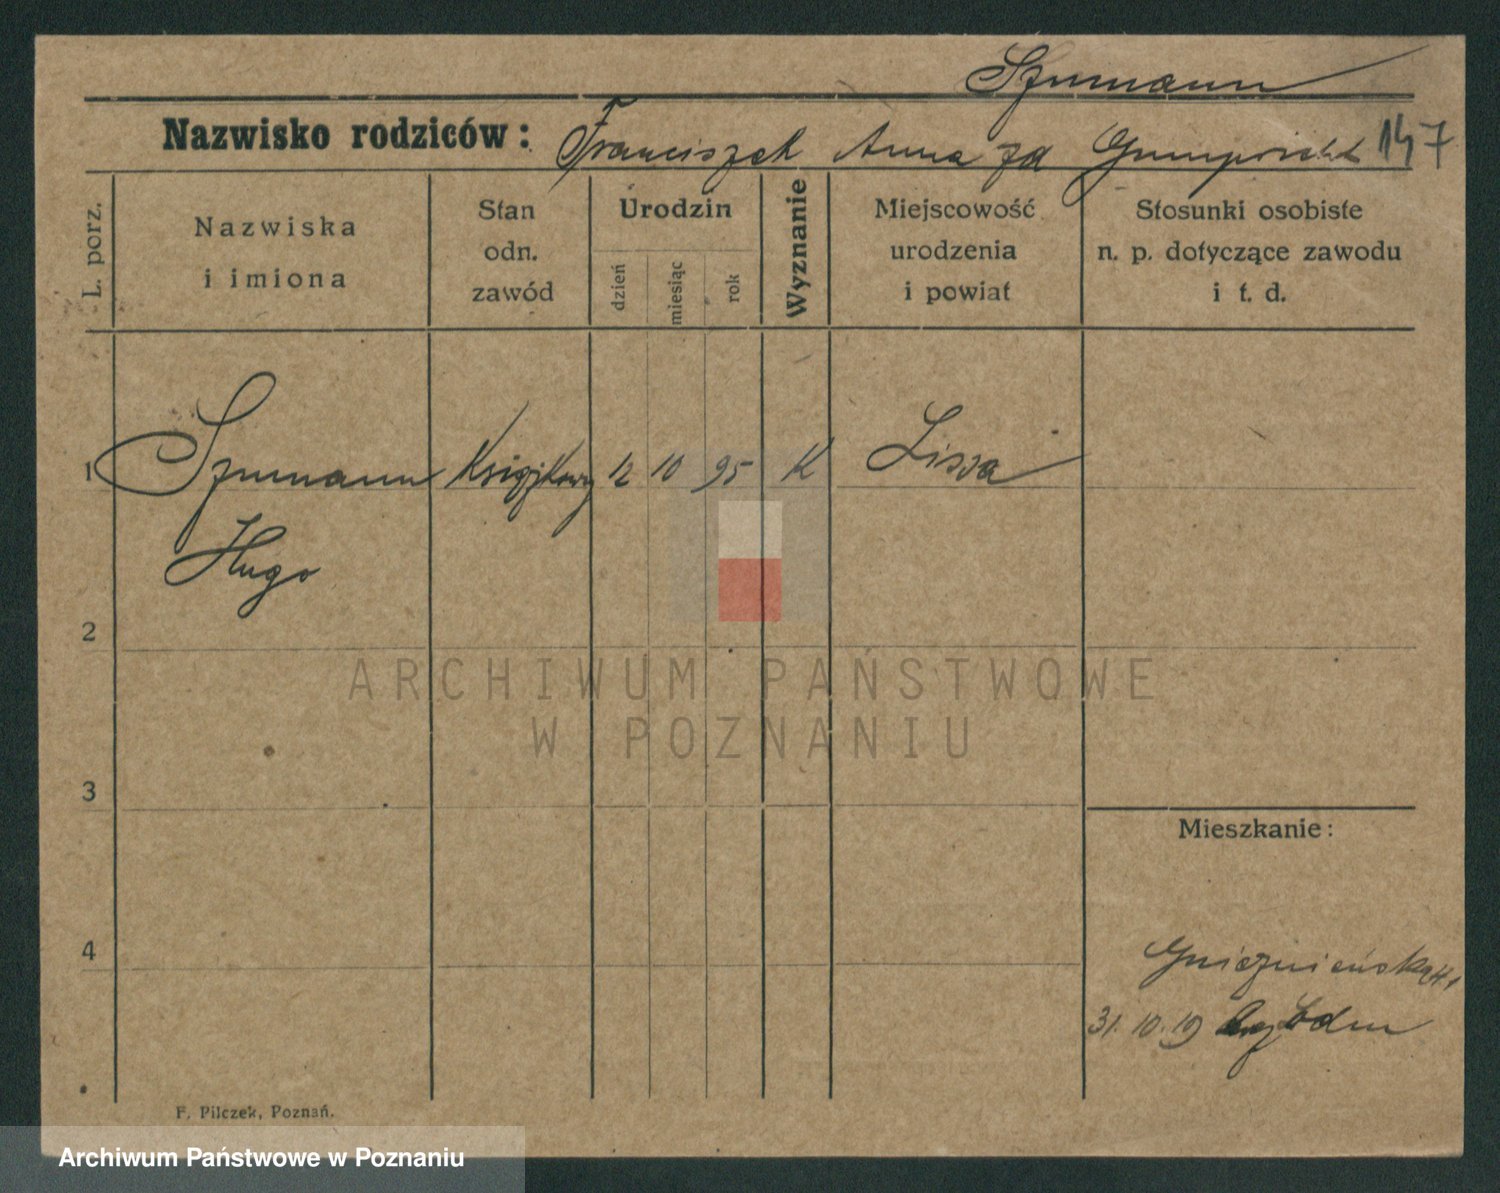 Szumann
Nazwisko rodziców: Franciszek Anna zd 147
L. porz.
Nazwiska
i imiona
Stan
odn.
zawód
Urodzin
dzień
miesiąc
rok
Wyznanie
Miejscowość
urodzenia
i powiat
Stosunki osobiste
n. p. dotyczące zawodu
i t. d.
1 Szumann Książkowy 12 10 95 K Lissa
Hugo
2
ARCHIWUM PAŃSTWOWE
W POZNANIU
3
Mieszkanie:
4
Gnieźnieńska
31.10.19
F. Pilczek, Poznań.
Archiwum Państwowe w Poznaniu